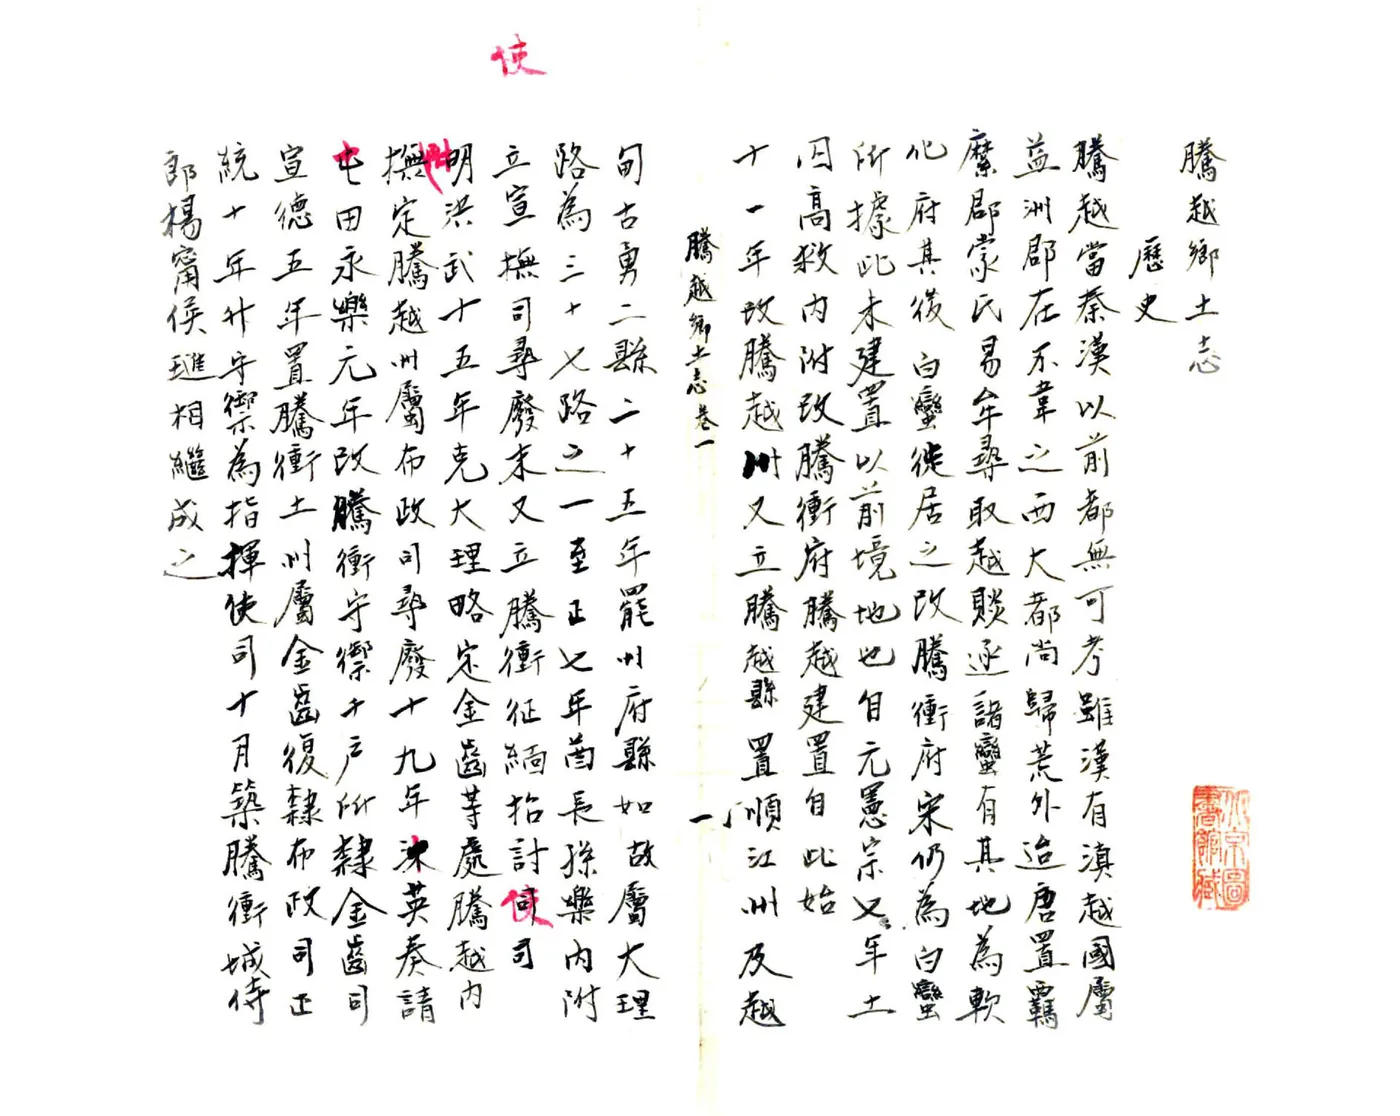 騰越鄉土志
歷史
騰越當秦漢以前都無可考雖漢有滇越國屬
益州郡在不韋之西大都尚歸荒外迨唐置羈
縻郡蒙氏易牟尋取越賧逐諸蠻有其地為軟
化府其後白蠻徙居之改騰衝府宋仍為白蠻
所據此未建置以前境地也自元憲宗七年土
囚高救內附改騰衝府騰越建置自此始
十一年改騰越州又立騰越縣置順江州及越
騰越鄉土志卷一
一
甸古勇二縣二十五年罷州府縣如故屬大理
路為三十七路之一至正七年酋長孫樂內附
立宣撫司尋廢末又立騰衝征緬招討使司
使
明洪武十五年克大理略定金齒等處騰越內
撫定騰越州屬布政司尋廢十九年沐英奏請
屯田永樂元年改騰衝守禦千戶所隸金齒司
宣德五年置騰衝土州屬金齒復隸布政司正
統十年升守禦為指揮使司十月築騰衝城侍
郎楊甯侯璡相繼成之
北京圖書館藏